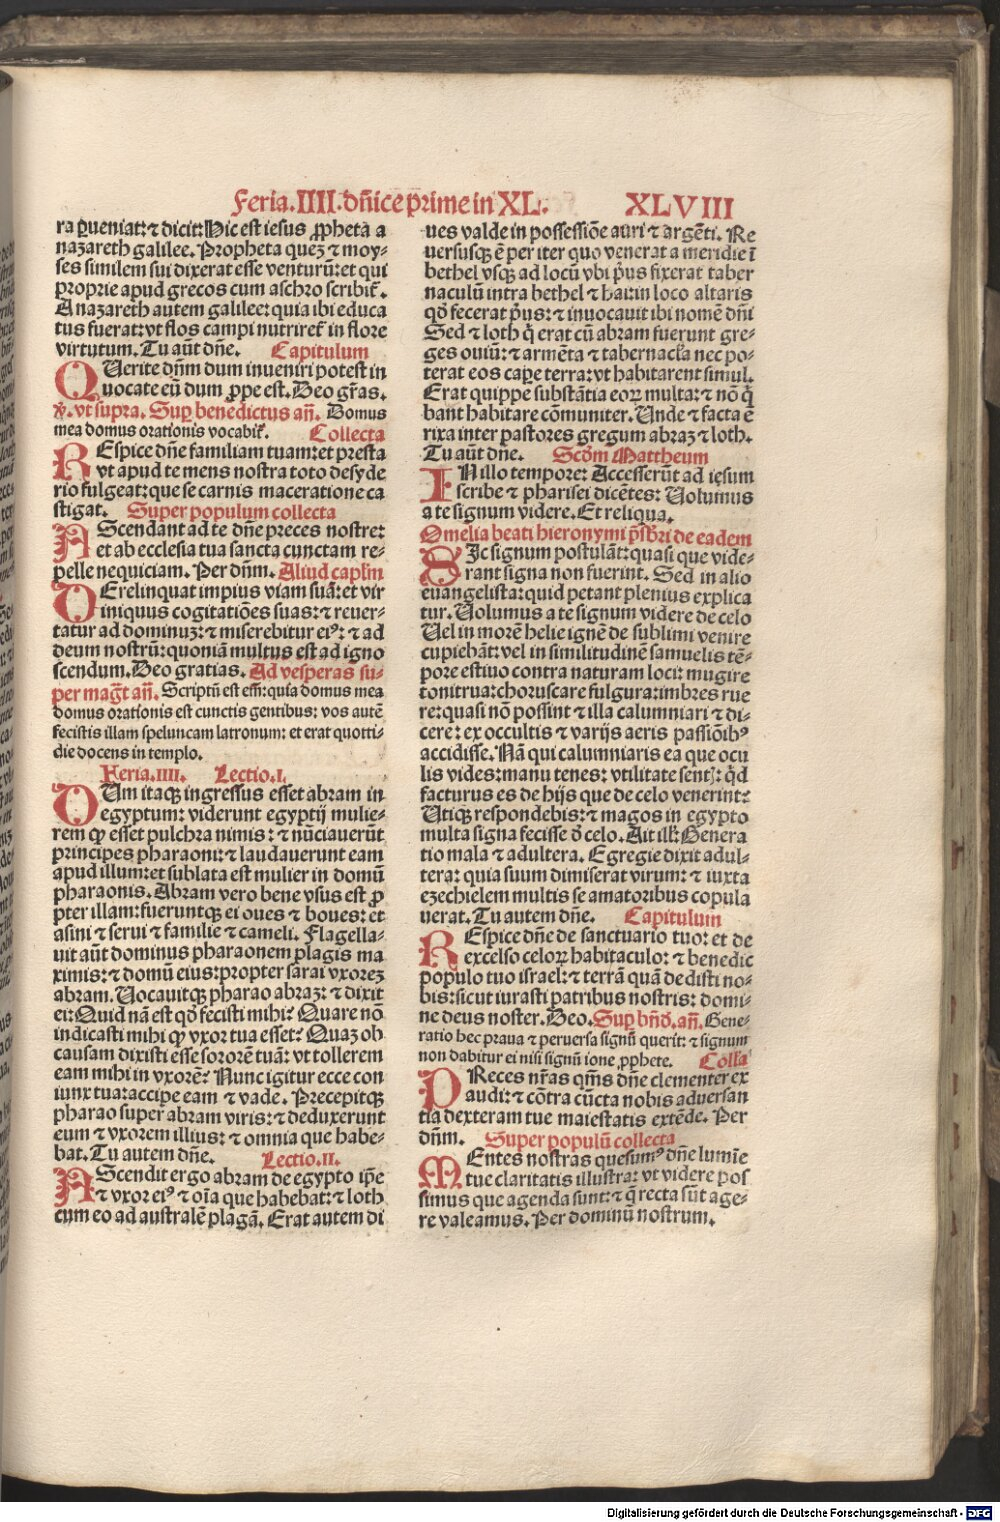 Feria.IIII.dñice prime in XL. XLVIII
ra queniat: ⁊ dicit: Hic est iesus ꝓpheta a
nazareth galilee. Propheta quez̄ ⁊ moy-
ses similem sui dixerat esse venturū: et qui
proprie apud grecos cum aschro scribit̃.
A nazareth autem galilee: quia ibi educa
tus fuerat: vt flos campi nutriret̃ in flore
virtutum. Tu aūt dñe. Capitulum
QUerite dñm dum inueniri potest in
uocate eū dum ꝓpe est. Deo grãs.
℣. vt supra. Suꝑ benedictus añ. Domus
mea domus orationis vocabit̃. Collecta
REspice dñe familiam tuam: et presta
vt apud te mens nostra toto desyde
rio fulgeat: que se carnis maceratione ca
stigat. Super populum collecta
AScendant ad te dñe preces nostre:
et ab ecclesia tua sancta cunctam re-
pelle nequiciam. Per dñm. Aliud capl̃m
DErelinquat impius viam suā: et vir
iniquus cogitatiōes suas: ⁊ reuer-
tatur ad dominuz: ⁊ miserebitur eiꝰ: ⁊ ad
deum nostrū: quoniā multus est ad igno
scendum. Deo gratias. Ad vesperas su-
per mag̃t añ. Scriptū est eñ: quia domus mea
domus orationis est cunctis gentibus: vos autē
fecistis illam speluncam latronum: et erat quotti-
die docens in templo.
Feria.IIII. Lectio.I.
DUm itaqꝫ ingressus esset abram in
egyptum: viderunt egyptij mulie-
rem ꝙ esset pulchra nimis: ⁊ nūciauerūt
principes pharaoni: ⁊ laudauerunt eam
apud illum: et sublata est mulier in domū
pharaonis. Abram vero bene vsus est ꝓ
pter illam: fueruntqꝫ ei oues ⁊ boues: et
asini ⁊ serui ⁊ familie ⁊ cameli. Flagella-
uit aūt dominus pharaonem plagis ma
ximis: ⁊ domū eius: propter sarai vxorez
abram. Uocauitqꝫ pharao abraz: ⁊ dixit
ei: Quid nā est qđ fecisti mihi? Quare nō
indicasti mihi ꝙ vxor tua esset? Quaz ob
causam dixisti esse sororē tuā: vt tollerem
eam mihi in vxorē? Nunc igitur ecce con
iunx tua: accipe eam ⁊ vade. Precepitqꝫ
pharao super abram viris: ⁊ deduxerunt
eum ⁊ vxorem illius: ⁊ omnia que habe-
bat. Tu autem dñe. Lectio.II.
AScendit ergo abram de egypto ip̄e
⁊ vxor eiꝰ ⁊ oīa que habebat: ⁊ loth
cum eo ad australē plagā. Erat autem di
ues valde in possessiōe auri ⁊ argēti. Re
uersusqꝫ ē per iter quo venerat a meridie ī
bethel vsqꝫ ad locū vbi pͥus fixerat taber
naculū intra bethel ⁊ hai: in loco altaris
qđ fecerat pͥus: ⁊ inuocauit ibi nomē dñi
Sed ⁊ loth q̇ erat cū abram fuerunt gre-
ges ouiū: ⁊ armēta ⁊ tabernacl̃a nec po-
terat eos caꝑe terra: vt habitarent simul.
Erat quippe substātia eoꝝ multa: ⁊ nō q̇
bant habitare cōmuniter. Unde ⁊ facta ē
rixa inter pastores gregum abraz ⁊ loth.
Tu aūt dñe. Scđm Mattheum
IN illo tempore: Accesserūt ad iesum
scribe ⁊ pharisei dicētes: Uolumus
a te signum videre. Et reliqua.
Omelia beati hieronymi pͥsbͥri de eadem
SIc signum postulāt: quasi que vide-
rant signa non fuerint. Sed in alio
euangelista: quid petant plenius explica
tur. Uolumus a te signum videre de celo
Uel in morē helie ignē de sublimi venire
cupiebāt: vel in similitudinē samuelis tē-
pore estiuo contra naturam loci: mugire
tonitrua: choruscare fulgura: imbres rue
re: quasi nō possint ⁊ illa calumniari ⁊ di-
cere: ex occultis ⁊ varijs aeris passiōibꝰ
accidisse. Nā qui calumniaris ea que ocu
lis vides: manu tenes: vtilitate sentis: qͥd
facturus es de hijs que de celo venerint?
Utiqꝫ respondebis: ⁊ magos in egypto
multa signa fecisse đ celo. Ait ill̃: Genera
tio mala ⁊ adultera. Egregie dixit adul-
tera: quia suum dimiserat virum: ⁊ iuxta
ezechielem multis se amatoribus copula
uerat. Tu autem dñe. Capitulum
REspice dñe de sanctuario tuo: et de
excelso celoꝝ habitaculo: ⁊ benedic
populo tuo israel: ⁊ terrā quā dedisti no-
bis: sicut iurasti patribus nostris: domi-
ne deus noster. Deo. Suꝑ bñđ. añ. Gene-
ratio hec praua ⁊ peruersa signū querit: ⁊ signum
non dabitur ei nisi signū ione ꝓphete. Coll̃a
PReces nr̃as q̄m̄s dñe clementer ex
audi: ⁊ cōtra cūcta nobis aduersan
tia dexteram tue maiestatis extēde. Per
dñm. Super populū collecta
MEntes nostras quesumꝰ dñe lumīe
tue claritatis illustra: vt videre pos
simus que agenda sunt: ⁊ q̄ recta sūt age-
re valeamus. Per dominū nostrum.
Digitalisierung gefördert durch die Deutsche Forschungsgemeinschaft - DFG